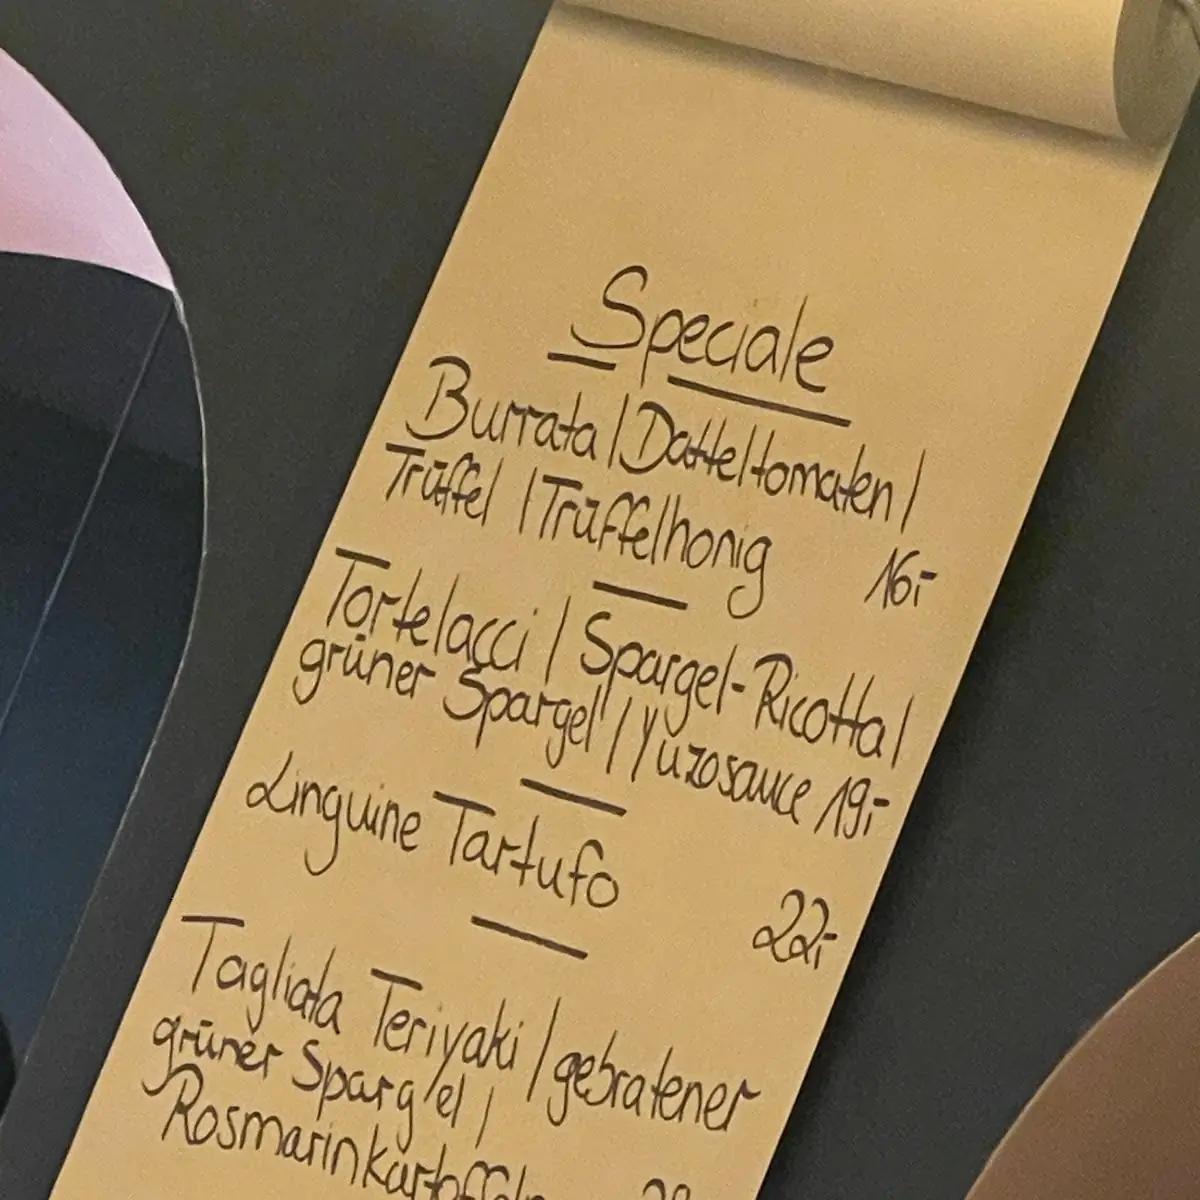 Speciale
Burrata | Datteltomaten |
Trüffel | Trüffelhonig 16,-
Tortelacci | Spargel-Ricotta |
grüner Spargel | Yuzosauce 19,-
Linguine Tartufo
22,-
Tagliata Teriyaki | gebratener
grüner Spargel |
Rosmarinkartoffeln